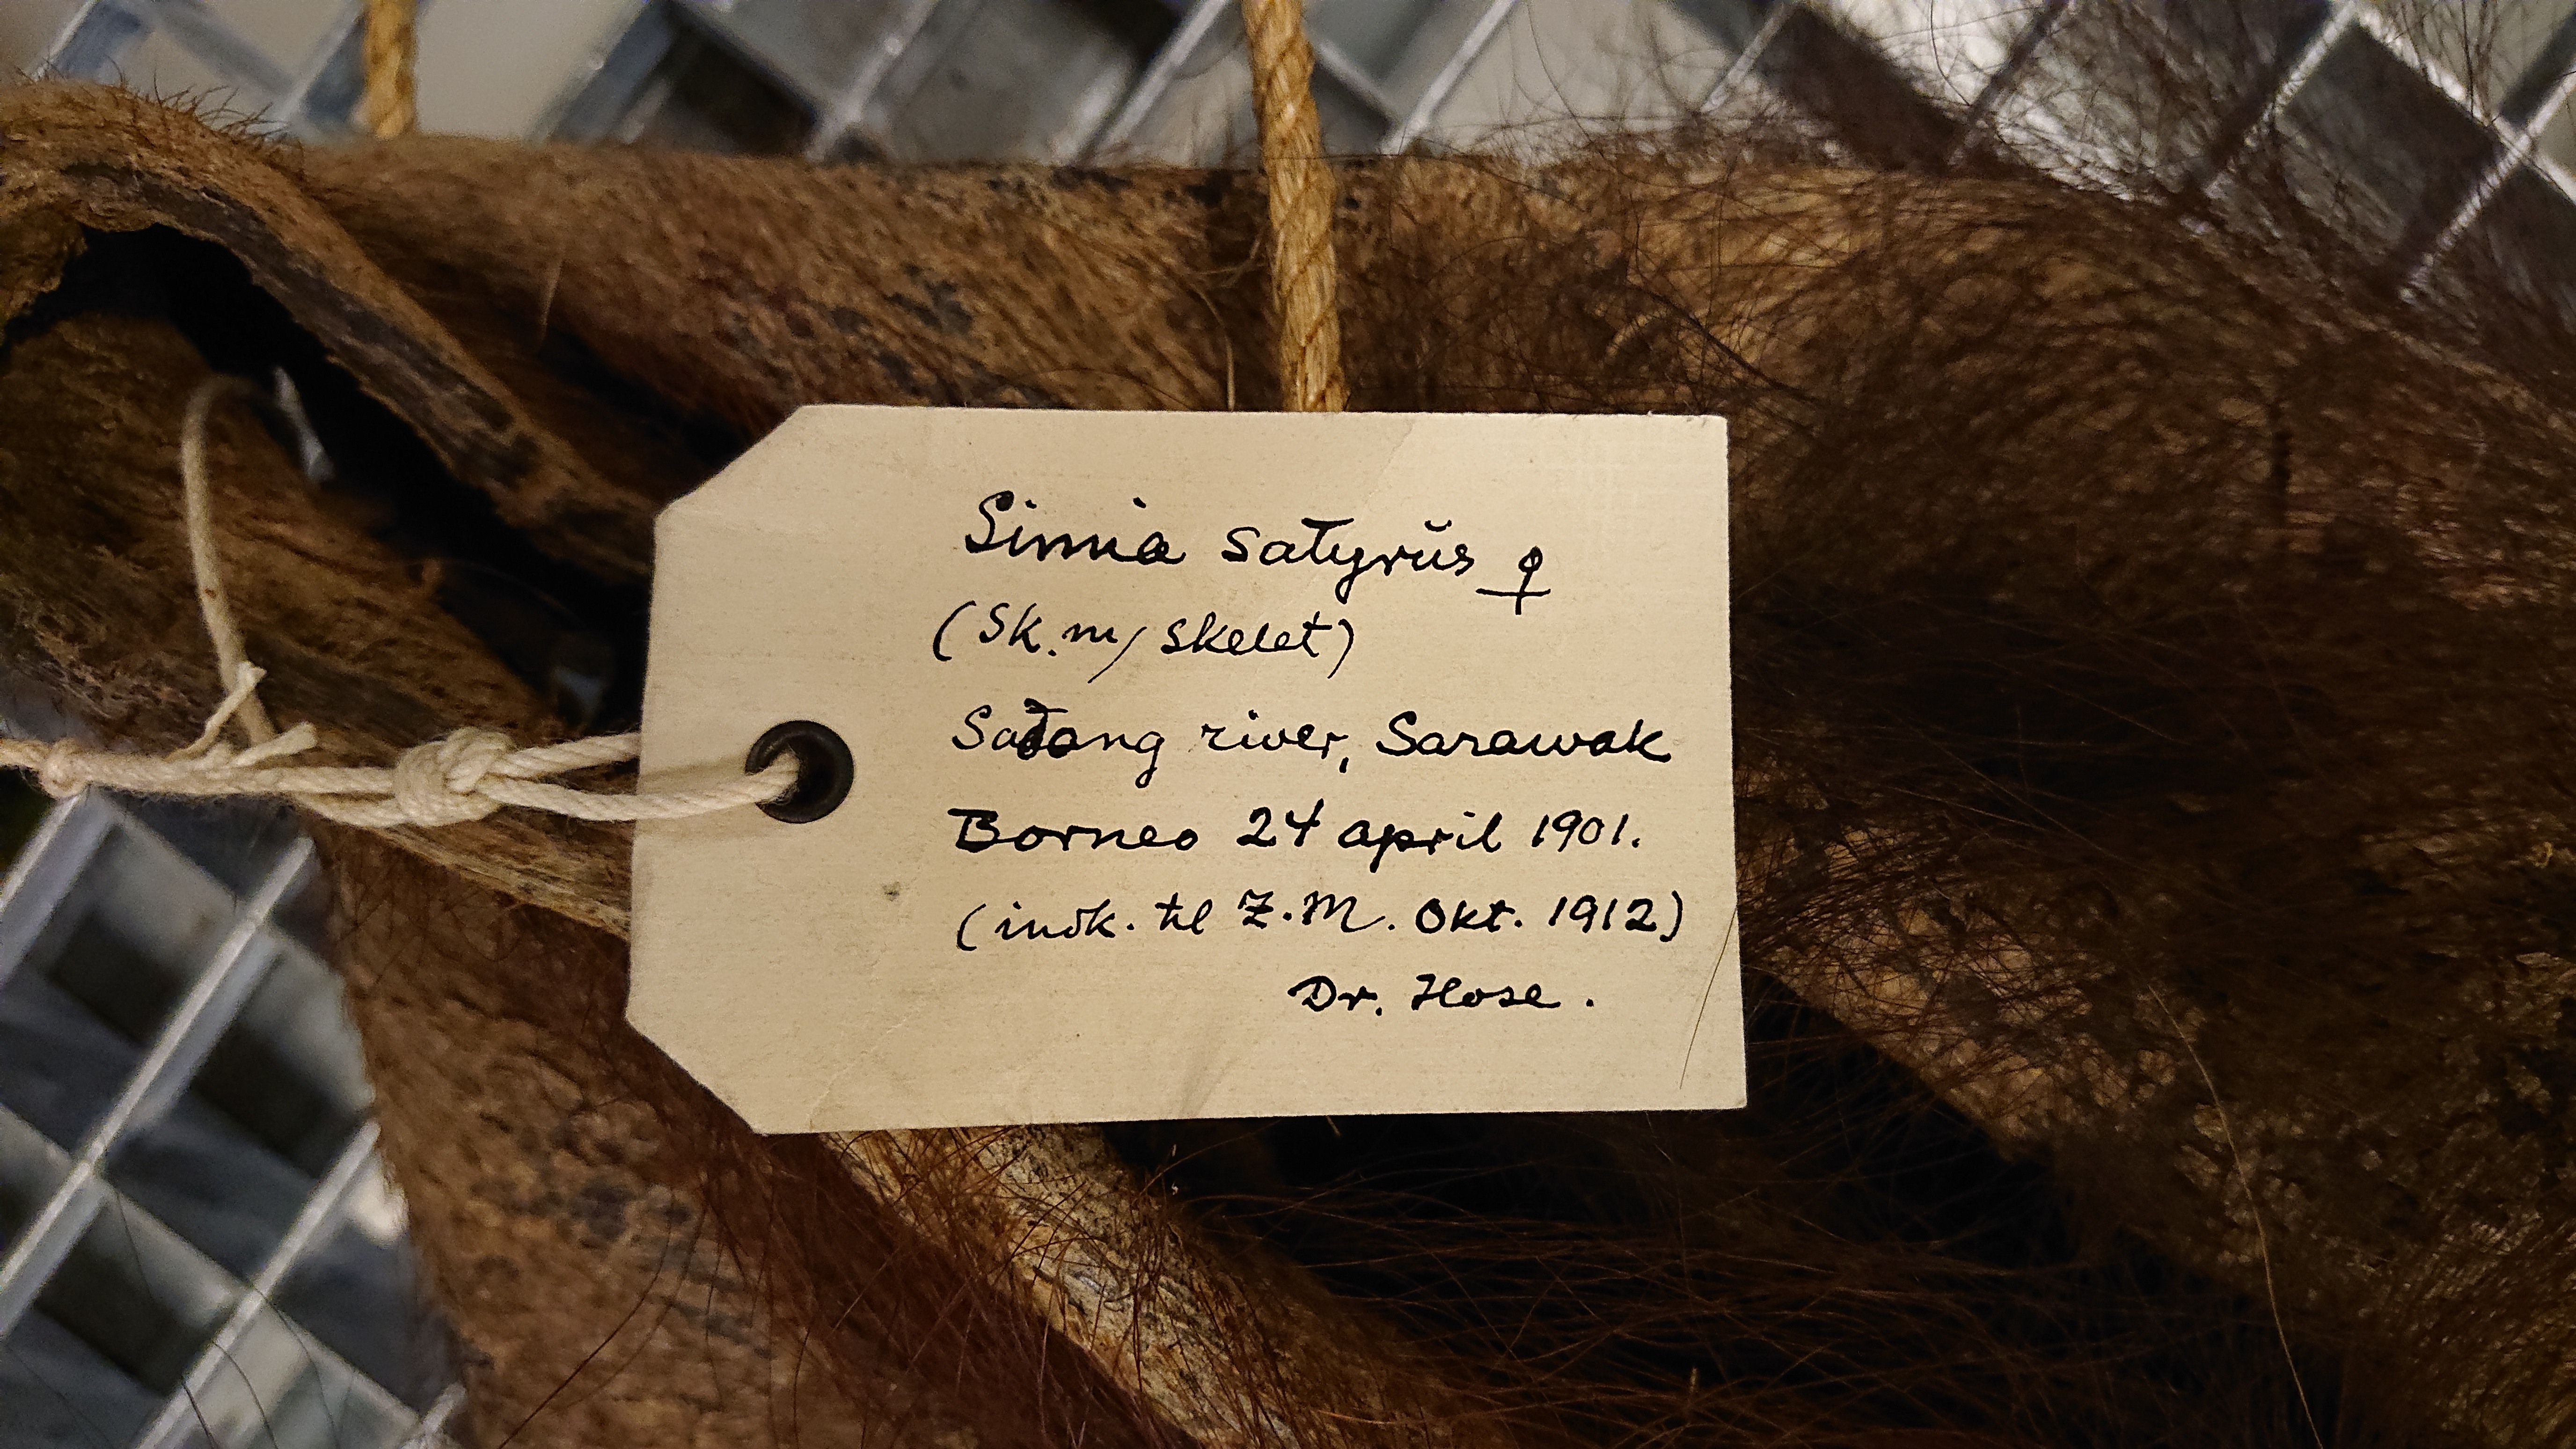 Simia satyrŭs ♀
(Sk. m/ skelet)
Sadong river, Sarawak
Borneo 24 april 1901.
(indk. til Z.M. Okt. 1912)
Dr. Hose.